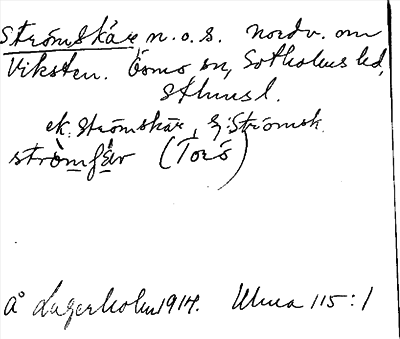 Strömskär n.o.s. nordv. om
Viksten. Ösmo sn, Sotholms hd,
Sthms l.
ek. Strömskär, S: Strömsk.
strömfǻr (Torö)
Å Lagerholm 1914. Uma 115:1